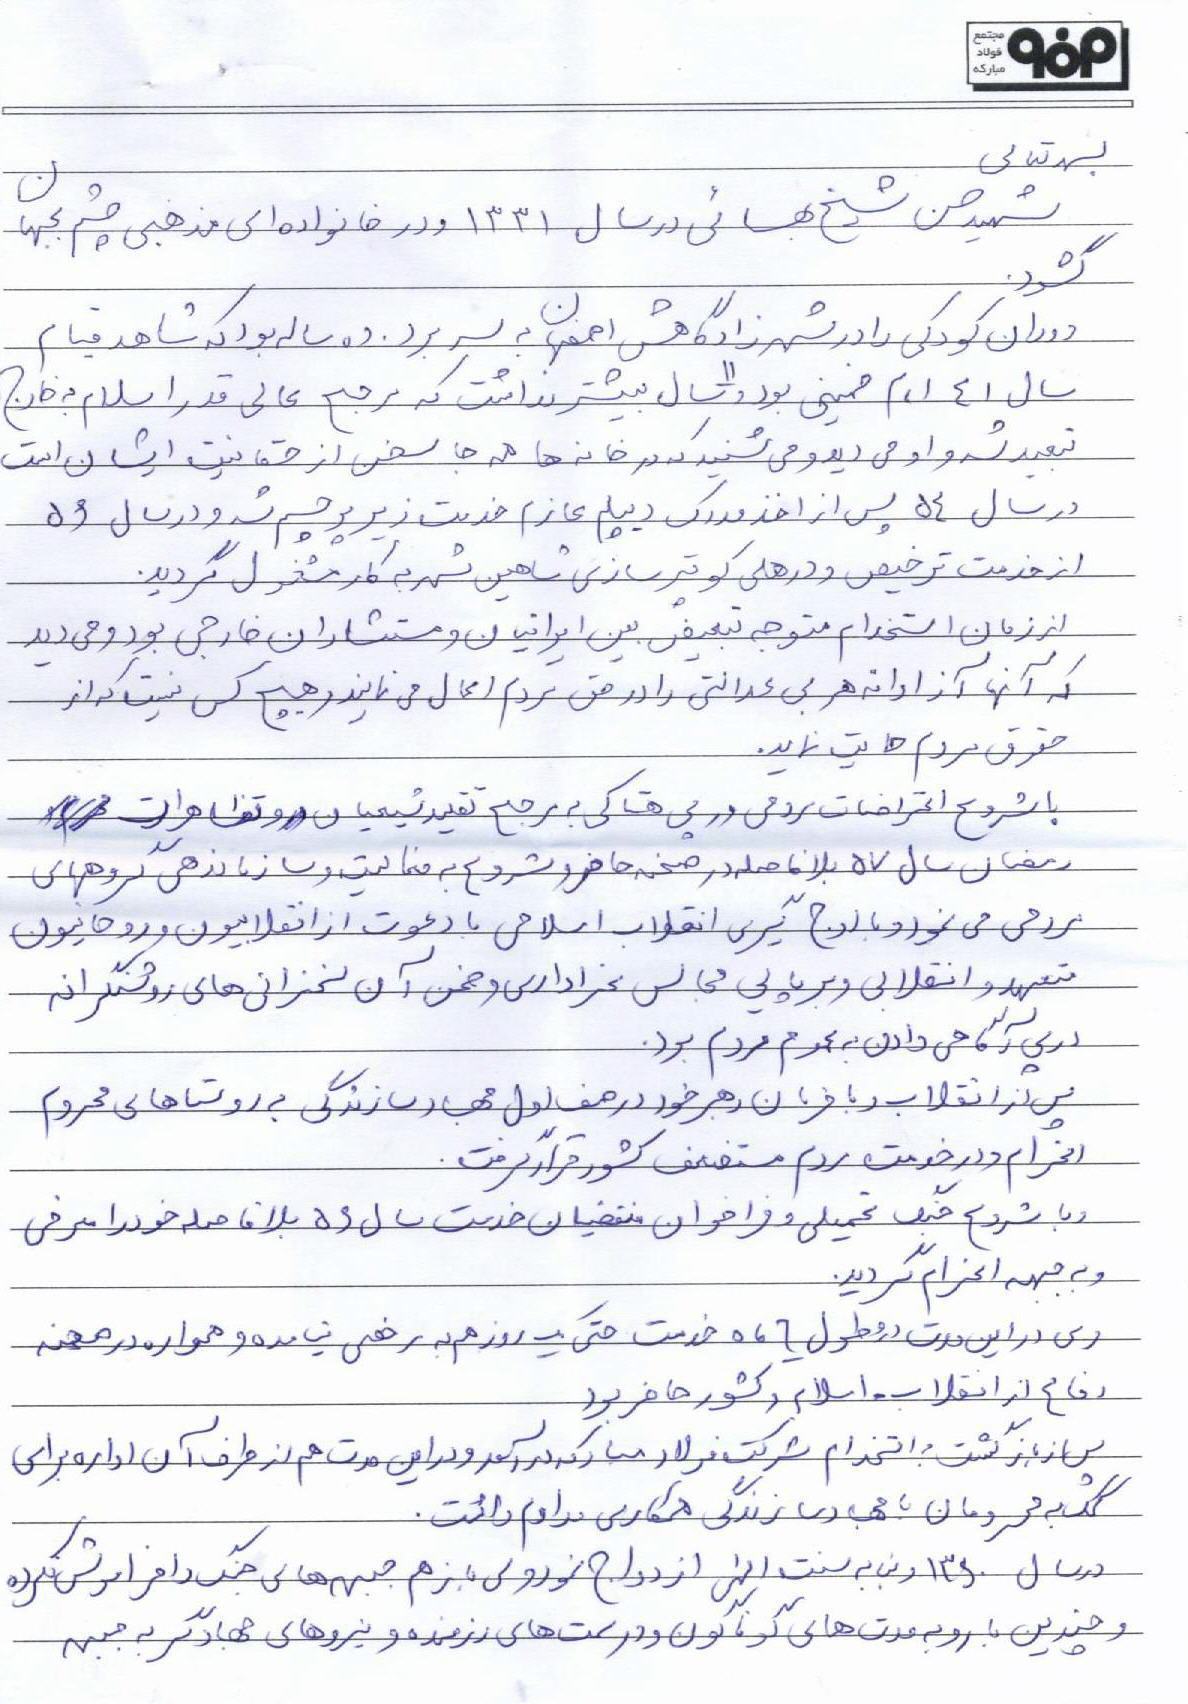 مجتمع
فولاد
مبارکه
بسمه تعالی
شهید حسن شیخ بهائی در سال ۱۳۳۱ و در خانواده ای مذهبی چشم بجهان
گشود.
دوران کودکی را در شهر زادگاهش اصفهان به سر برد. ده ساله بود که شاهد قیام
سال ٤١ امام خمینی بود و ۱۱ سال بیشتر نداشت که مرجع عالی قدر اسلام به خارج
تبعید شد و او می دید و می شنید که در خانه ها همه جا سخن از حقانیت ایشان است
در سال ٥٤ پس از اخذ مدرک دیپلم عازم خدمت زیر پرچم شد و در سال ٥٦
از خدمت ترخیص و در هلی کوپتر سازی شاهین شهر به کار مشغول گردید.
از زمان استخدام متوجه تبعیض بین ایرانیان و مستشاران خارجی بود و می دید
که آنها آزادانه هر بی عدالتی را در حق مردم اعمال می نمایند و هیچ کس نیست که از
حقوق مردم حمایت نماید.
با شروع اعتراضات مردمی در پی هتاکی به مرجع تقلید شیعیان و تظاهرات
رمضان سال ٥٧ بلافاصله در صحنه حاضر و شروع به فعالیت و سازماندهی گروههای
مردمی می نمود و با اوج گیری انقلاب اسلامی با دعوت از انقلابیون و روحانیون
متعهد و انقلابی و برپایی مجالس عزاداری و ضمن آن سخنرانی های روشنگرانه
در پی آگاهی دادن به عموم مردم بود.
پس از انقلاب و با فرمان رهبر خود در صف اول جهاد سازندگی به روستاهای محروم
اعزام و در خدمت مردم مستضعف کشور قرار گرفت.
و با شروع جنگ تحمیلی و فراخوان منقضیان خدمت سال ٥٦ بلافاصله خود را معرفی
و به جبهه اعزام گردید.
وی در این مدت در طول ٦ ماه خدمت حتی یک روز هم به مرخصی نیامده و همواره در صحنه
دفاع از انقلاب اسلام و کشور حاضر بود
پس از بازگشت به استخدام شرکت فولاد مبارکه در آمد و در این مدت هم از طرف آن اداره برای
کمک به محرومان با جهاد سازندگی همکاری مداوم داشت.
در سال ۱۳٦۰ و بنا به سنت الهی ازدواج نمود و وی باز هم جبهه های جنگ را فراموش نکرده
و چندین بار و به مدت های گوناگون و در سمت های رزمنده و نیروهای جهادگر به جبهه